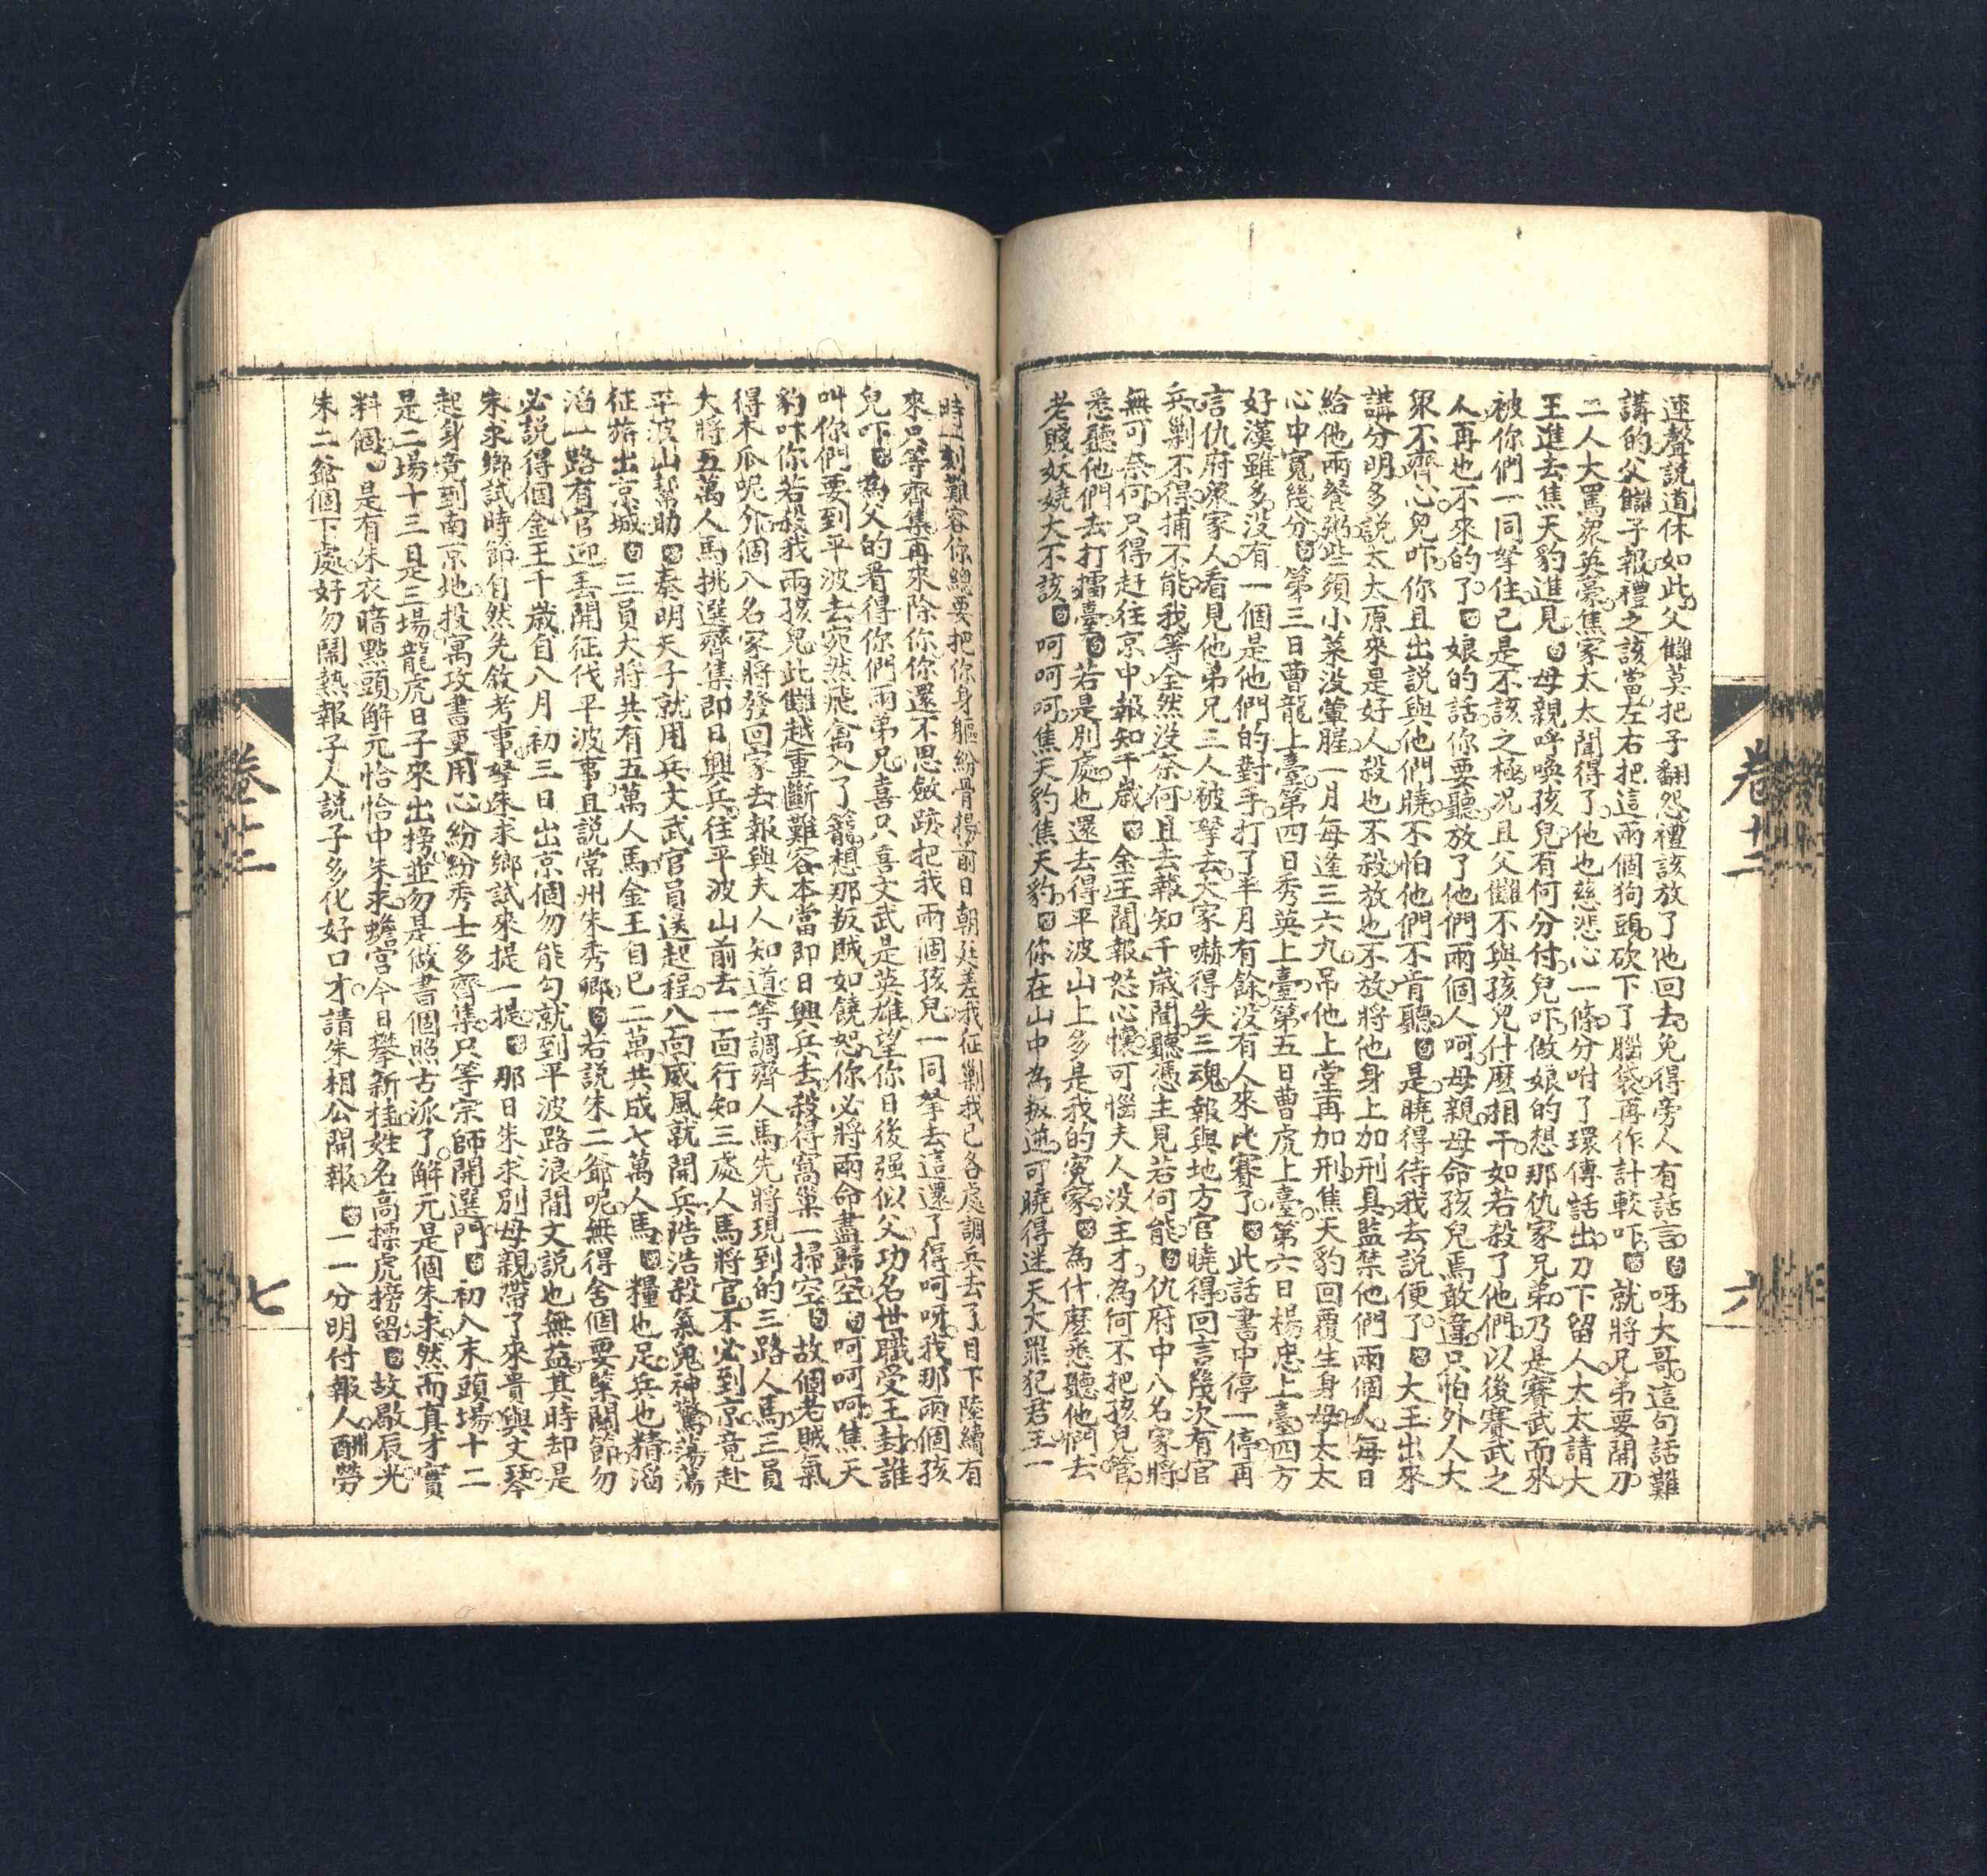 連聲說道休如此父讎莫把子翻怨禮該放了他回去免得旁人有話言白呀大哥這句話難
講的父讎子報禮之該當左右把這兩個狗頭砍下了腦袋再作計較吓唱就將兄弟要開刀
二人大罵衆英豪焦家太太聞得了他也慈悲心一條分咐了環傳話出刀下留人太太請大
王進去焦天豹進見白母親呼喚孩兒有何分付兒吓做娘的想那仇家兄弟乃是賽武而來
被你們一同拏住已是不該之極况且父讎不與孩兒什麽相干如若殺了他們以後賽武之
人再也不來的了唱娘的話你要聽放了他們兩個人呵母親母命孩兒焉敢違只怕外人大
衆不齊心兒吓你且出說與他們曉不怕他們不肯聽白是曉得待我去說便了唱大王出來
講分明多說太太原來是好人殺也不殺放也不放將他身上加刑具監禁他們兩個人每日
給他兩餐粥些須小菜没葷腥一月每逢三六九吊他上堂再加刑焦天豹回覆生身母太太
心中寬幾分白第三日曹龍上臺第四日秀英上臺第五日曹虎上臺第六日楊忠上臺四方
好漢雖多没有一個是他們的對手打了半月有餘没有人來此賽了唱此話書中停一停再
言仇府衆家人看見他弟兄三人被拏去大家嚇得失三魂報與地方官曉得回言幾次有官
兵剿不得捕不能我等全然没奈何且去報知千歲聞聽憑主見若何能白仇府中八名家將
無可奈何只得赶往京中報知千歲唱金王聞報怒心懷可惱夫人没主才為何不把孩兒管
悉聽他們去打擂臺白若是別處也還去得平波山上多是我的寃家唱為什麽悉聽他們去
老賤妖嬈大不該白呵呵呵焦天豹焦天豹唱你在山中為叛逆可曉得迷天大罪犯君王一
卷廿二
六
時一刻難容你總要把你身軀紛骨揚前日朝廷差我征剿我已各處調兵去了目下陸續有
來只等齊集再來除你你還不思斂跡把我兩個孩兒一同拏去這還了得呵呀我那兩個孩
兒吓唱為父的看得你們兩弟兄喜只喜文武是英雄望你日後强似父功名世職受王封誰
叫你們要到平波去宛然飛禽入了籠想那叛賊如饒恕你必將兩命盡歸空白呵呵呵焦天
豹吓你若殺我兩孩兒此讎越重斷難容本當即日興兵去殺得窩巢一掃空白故個老賊氣
得木瓜呢介個八名家將發回家去報與夫人知道等調齊人馬先將現到的三路人馬三員
大將五萬人馬挑選齊集即日興兵往平波山前去一面行知三處人馬將官不必到京竟赴
平波山幫助唱秦明天子就用兵文武官員送起程八面威風就開兵浩浩殺氣鬼神驚蕩蕩
征旂出京城白三員大將共有五萬人馬金王自己二萬共成七萬人馬唱糧也足兵也精滔
滔一路有官迎丢開征伐平波事且說常州朱秀卿白若說朱二爺呢無得舍個要㧱關節勿
必說得個金王千歲自八月初三日出京個勿能勾就到平波路浪閒文說也無益其時却是
朱求鄉試時節自然先敘考事拏朱求鄉試來提一提唱那日朱求別母親帶了來貴與文琴
起身竟到南京地投寓攻書更用心紛紛秀士多齊集只等宗師開選門白初八末頭場十二
是二場十三日是三場龍虎日子來出榜並勿是做書個照古派了解元是個朱求然而真才實
料個唱是有朱衣暗點頭解元恰恰中朱求蟾宮今日攀新桂姓名高標虎榜留白故歇辰光
朱二爺個下處好勿鬧熱報子人說子多化好口才請朱相公開報唱一一分明付報人酬勞
卷廿二
七